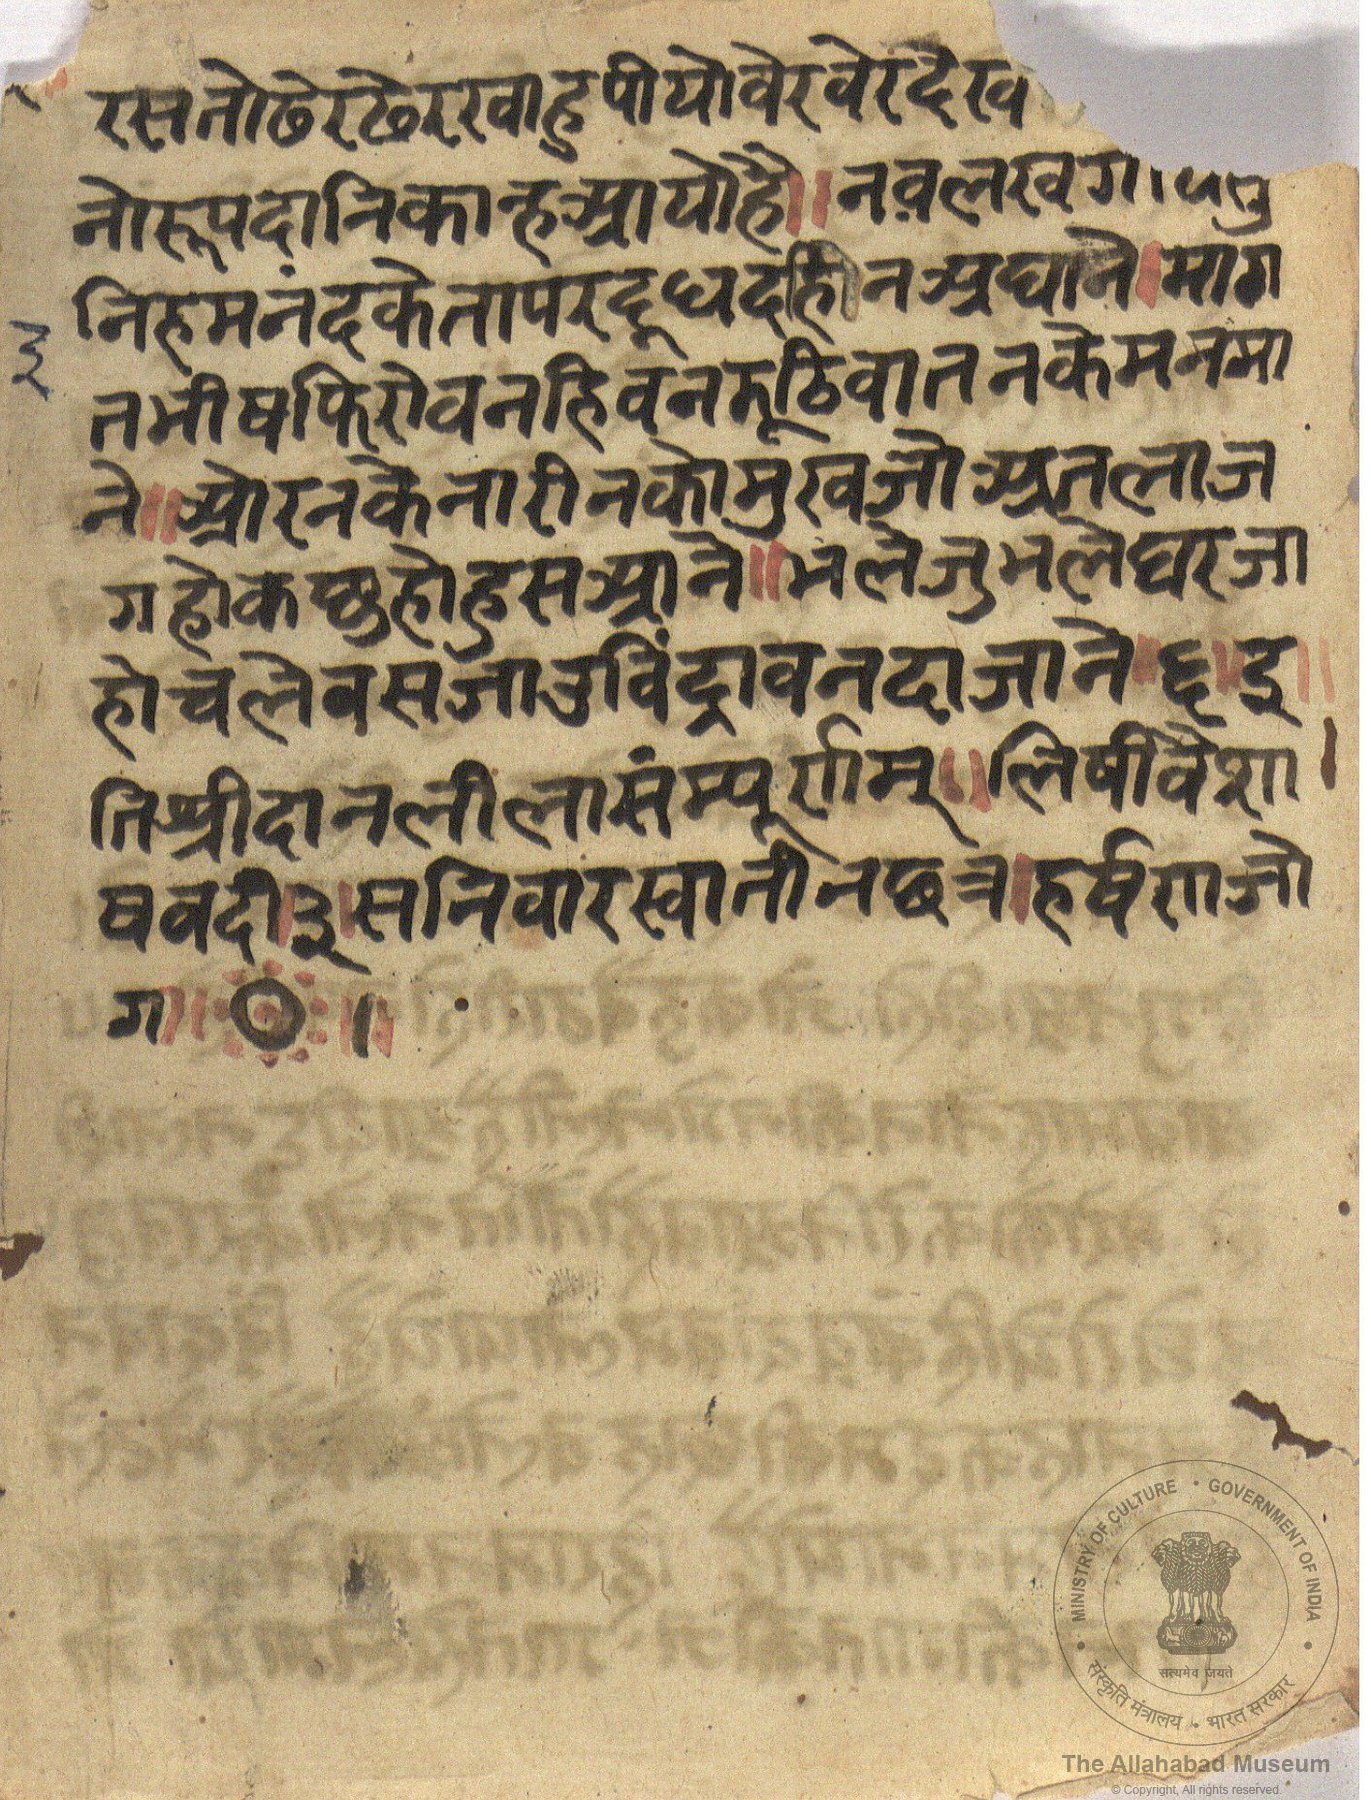 रसतोढेरढेरखाहुपीयोवेरवेरदेख
नोरूपदानिकान्हआयोहै॥नवलख
निहमनंदकेतापरदूधदहीनअघाने।माग
तभीषफिरोवनहिवनझूठिवातनकेमनमा
ने॥ओरनकेनारीनकोमुखजोअतलाज
गहोकछुहोहुसआने॥भलेजुभलेघरजा
होचलेवसजाउविंद्रावनदाजाने॥६॥इ
तिश्रीदानलीलासंम्पूर्णम्॥लिषींवैशा
षवदी।३।सनिवारस्वातीनछत्र।हर्षणजो
ग॥०॥
३
MINISTRY OF CULTURE • GOVERNMENT OF INDIA
सत्यमेव जयते
संस्कृति मंत्रालय • भारत सरकार
The Allahabad Museum
© Copyright, All rights reserved.